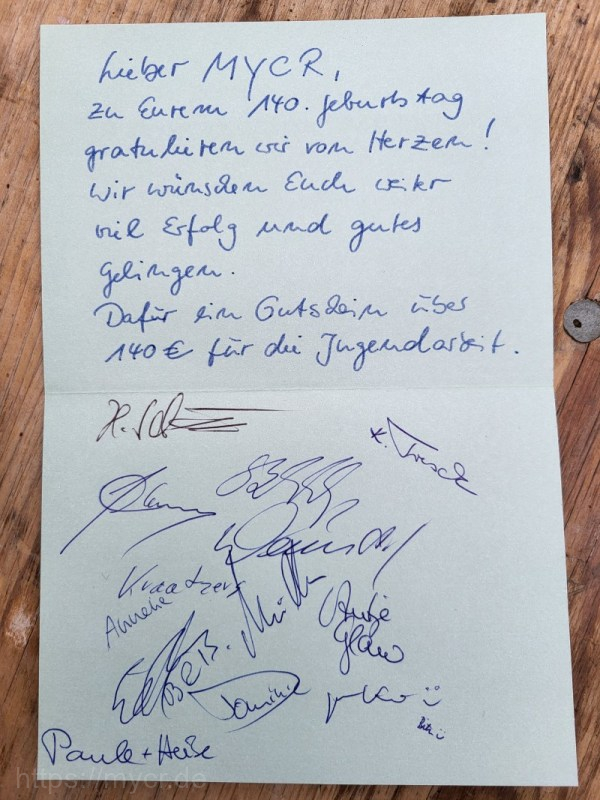 Lieber MYCR,
zu Eurem 140. Geburtstag
gratulieren wir von Herzen!
Wir wünschen Euch weiter
viel Erfolg und gutes
Gelingen.
Dafür ein Gutschein über
140 € für die Jugendarbeit.
Annelie
Antje
Glaw
Paule + Heise
https://mycr.de